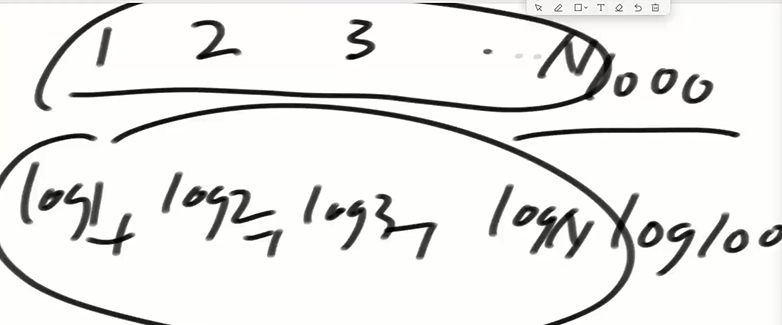 1 2 3 . . . N 1000
log1 + log2 + log3 + logN log100